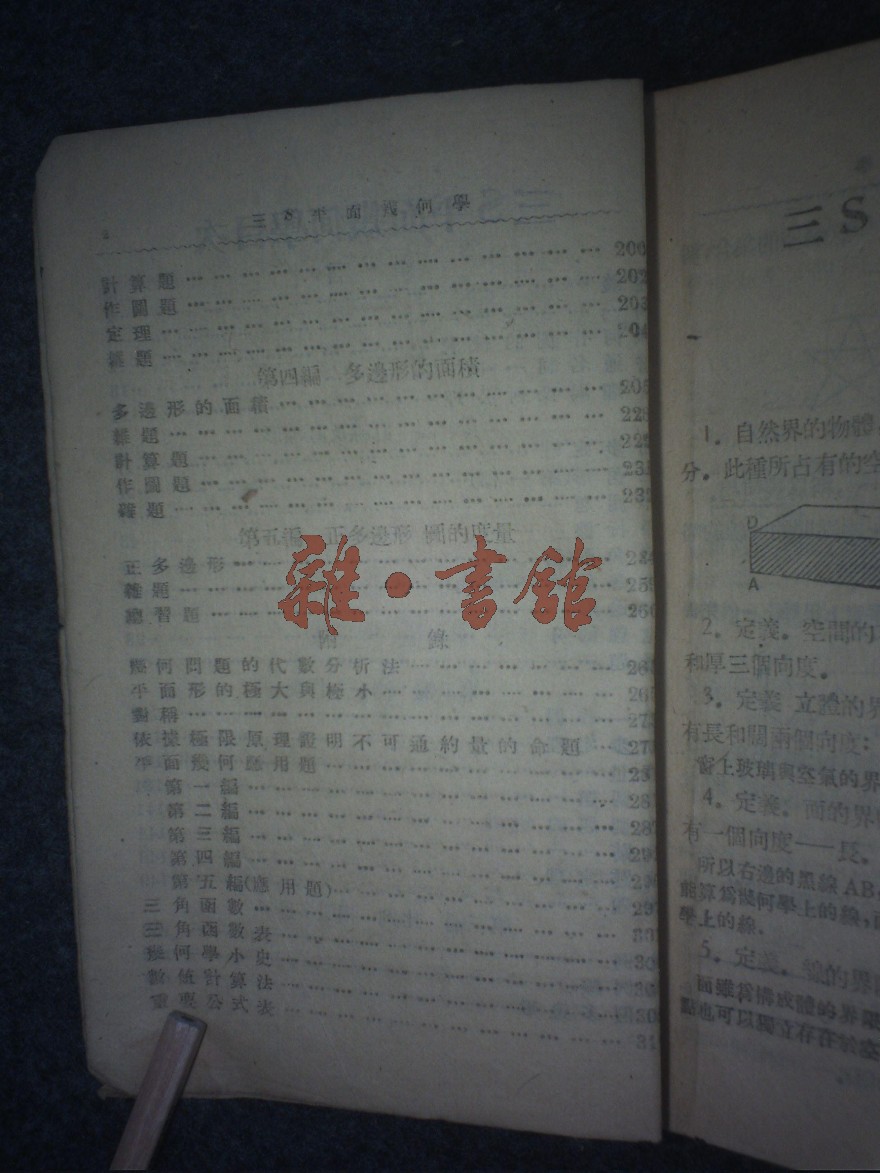 2
三S平面幾何學
計算題 … 200
作圖題 … 202
定理 … 203
雜題 … 204
第四編 多邊形的面積
多邊形的面積 … 205
雜題 … 228
計算題 … 229
作圖題 … 231
雜題 … 232
第五編 正多邊形 圓的度量
正多邊形 … 234
雜題 … 255
總習題 … 256
附錄
幾何問題的代數分析法
平面形的極大與極小
對稱
依據極限原理證明不可通約量的命題
平面幾何應用題
第一編
第二編
第三編
第四編
第五編(應用題)
三角函數
三角函數表
幾何學小史
數值計算法
重要公式表
雜·書館
三S
1. 自然界的物體
分.此種所占有的空
D
A
2. 定義. 空間的
和厚三個向度.
3. 定義 立體的界
有長和闊兩個向度:
窗上玻璃與空氣的界
4. 定義. 面的界
有一個向度——長.
所以右邊的黑線AB
能算爲幾何學上的線,
學上的線.
5. 定義. 線的界
面雖爲構成體的界限
點也可以獨立存在於空